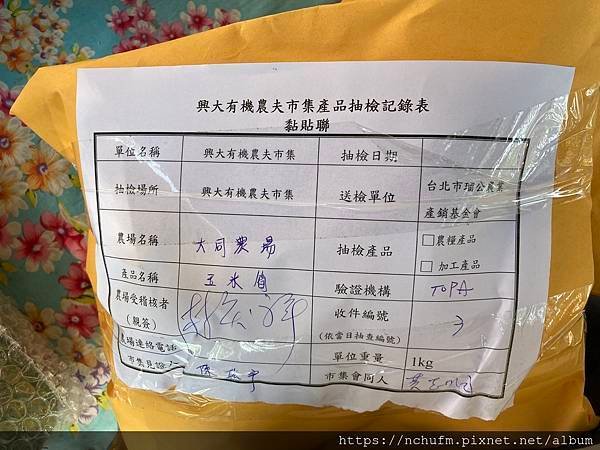 興大有機農夫市集產品抽檢記錄表
黏貼聯
單位名稱 興大有機農夫市集 抽檢日期
抽檢場所 興大有機農夫市集 送檢單位 台北市瑠公農業
產銷基金會
農場名稱 大同農場 抽檢產品 □農糧產品
□ 加工產品
產品名稱 玉米筍 驗證機構 TOPA
農場受稽核者
(親簽)
收件編號
(依當日抽查編號)
3
農場連絡電話 單位重量 1kg
市集見證人 市集會同人
https://nchufm.pixnet.net/album